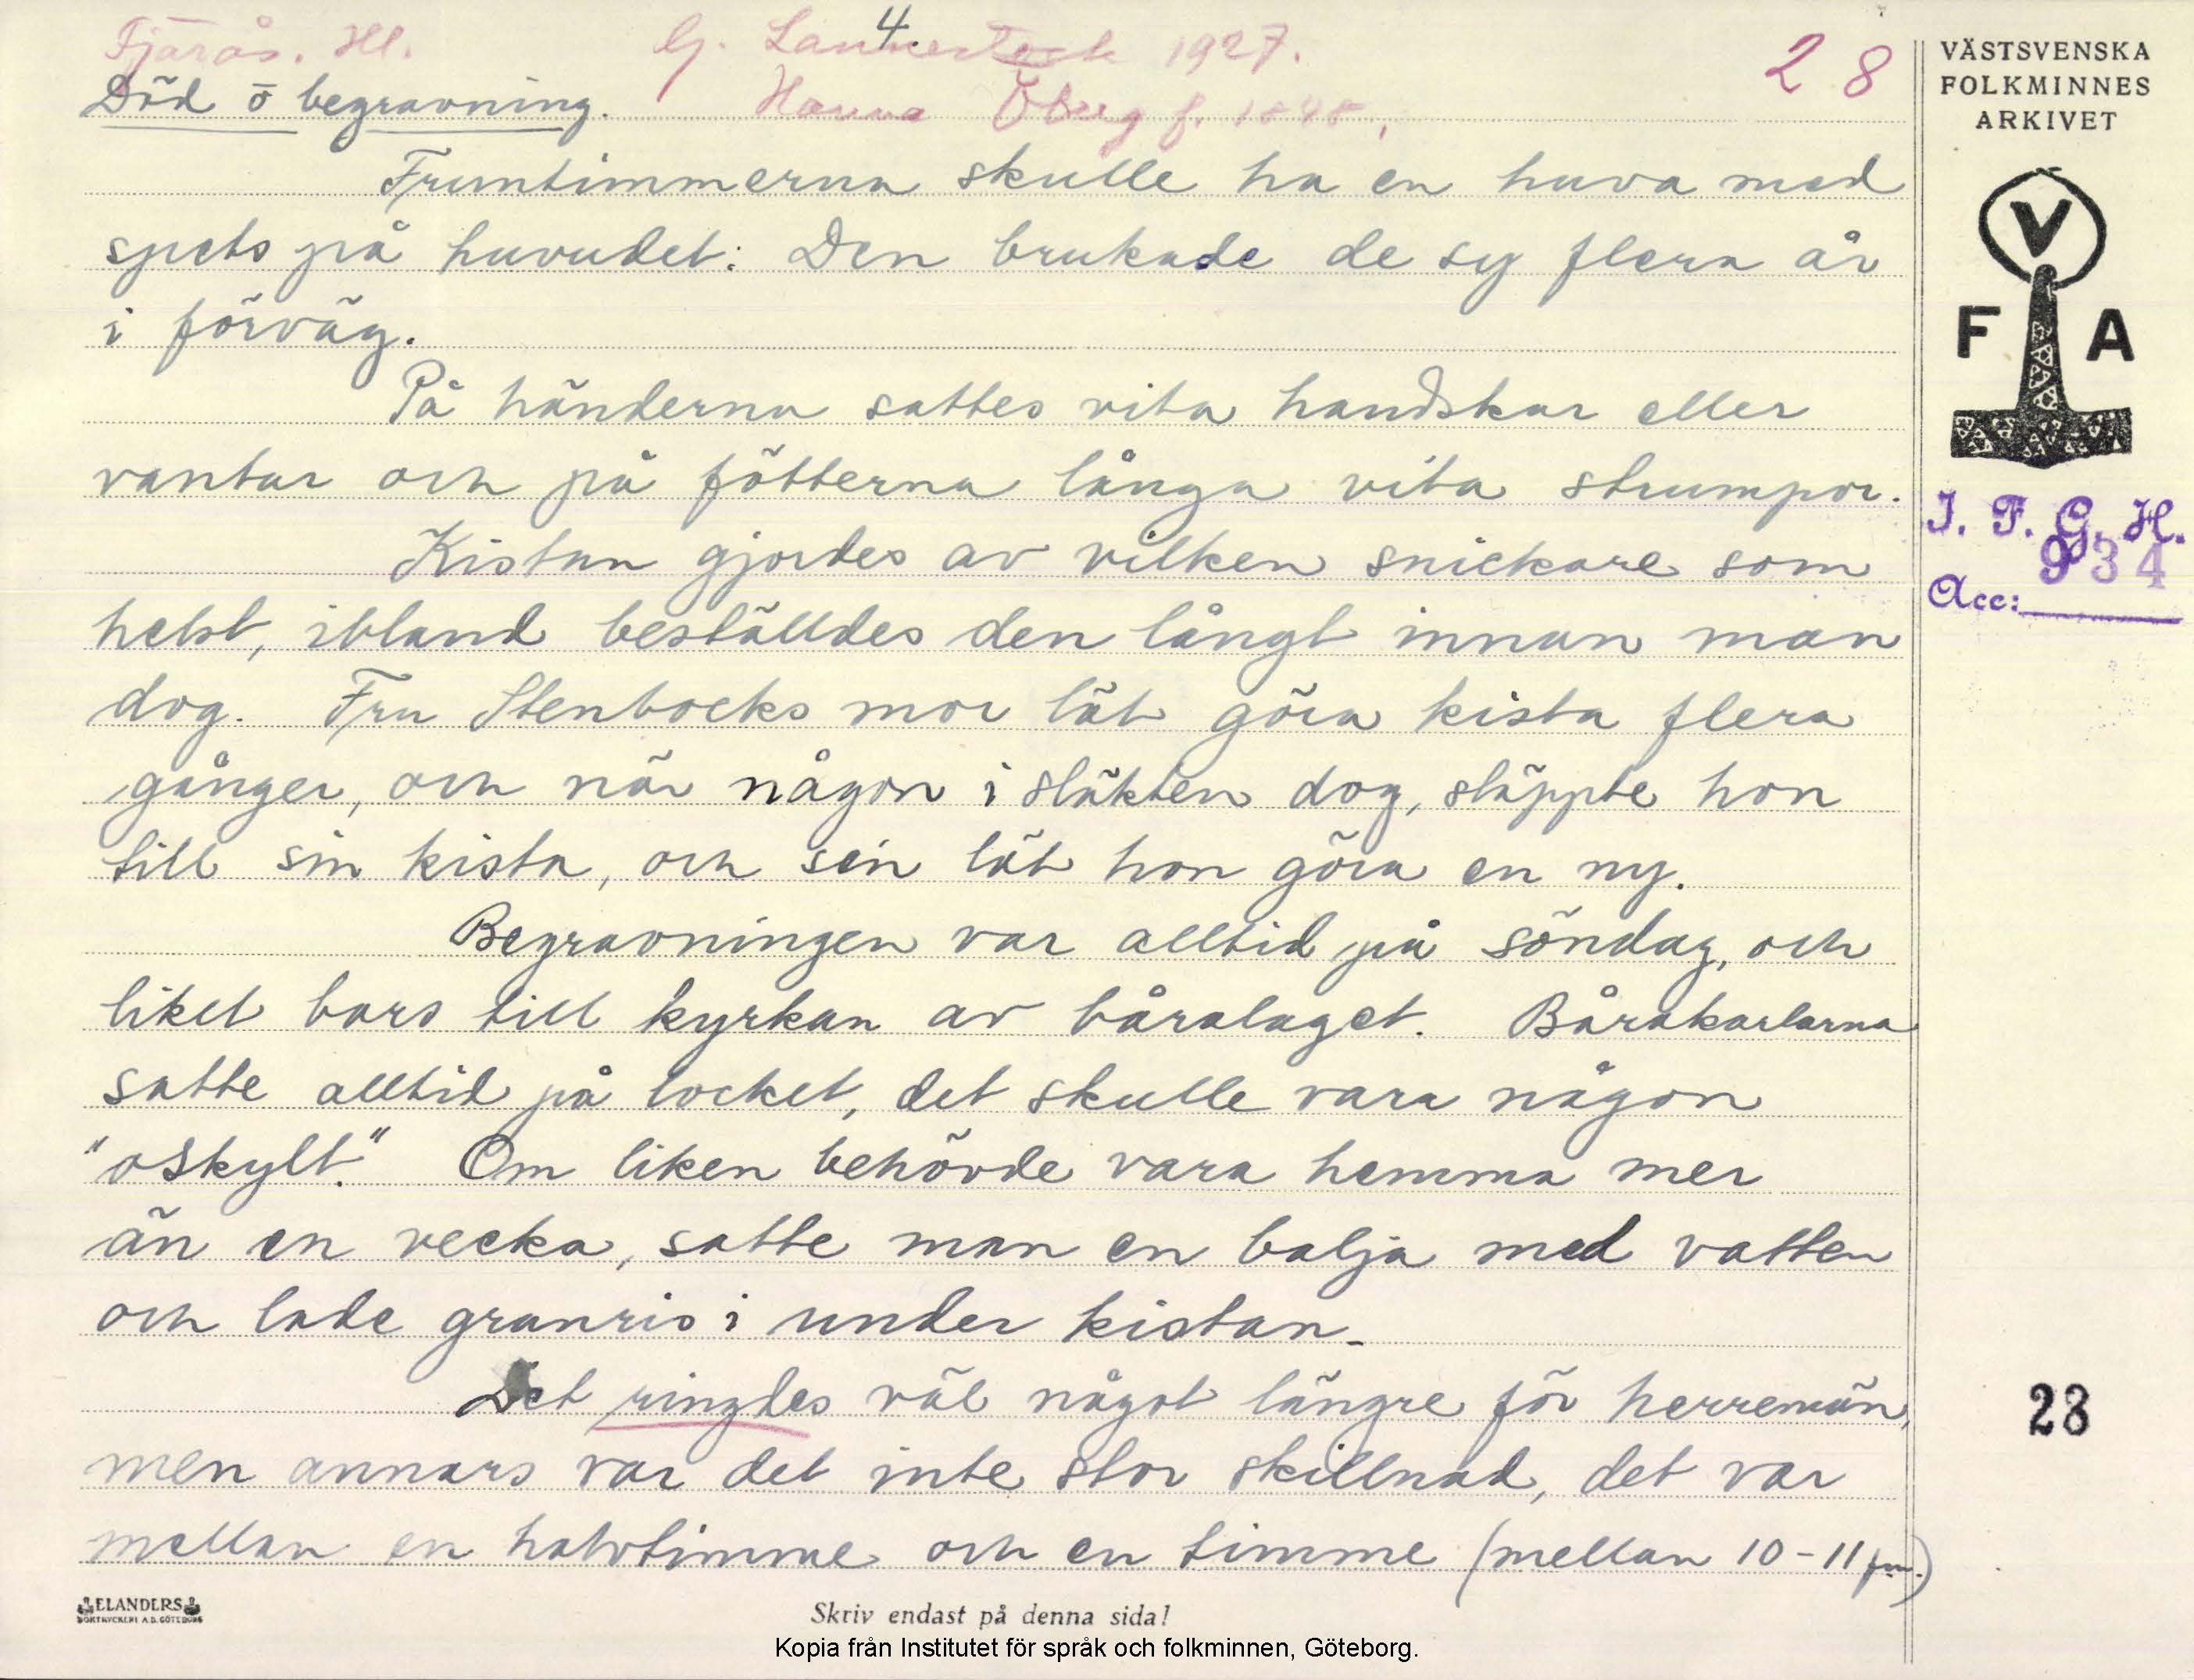 4
Fjärås. Hl. G. 1927. 28
Död o begravning. Hanna Öberg f. 1848.
Fruntimmerna skulle ha en huva med
spets på huvudet: Den brukade de sy flera år
i förväg.
På händerna sattes vita handskar eller
vantar och på fötterna långa vita strumpor.
Kistan gjordes av vilken snickare som
helst, ibland beställdes den långt innan man
dog. Fru Stenbocks mor lät göra kista flera
gånger, och när någon i släkten dog, släppte hon
till sin kista, och sen lät hon göra en ny.
Begravningen var alltid på söndag, och
liket bars till kyrkan av båralaget. Bårakarlarna
satte alltid på locket, det skulle vara någon
"oskylt". Om liken behövde vara hemma mer
än en vecka, satte man en balja med vatten
och lade granris i under kistan.
Det ringdes väl något längre för herremän,
men annars var det inte stor skillnad, det var
mellan en halvtimme och en timme (mellan 10-11 fm.)
VÄSTSVENSKA
FOLKMINNES
ARKIVET
V
F A
I. F. G. H.
934
Acc:
28
ELANDERS
BOKTRYCKERI A.B. GÖTEBORG
Skriv endast på denna sida!
Kopia från Institutet för språk och folkminnen, Göteborg.